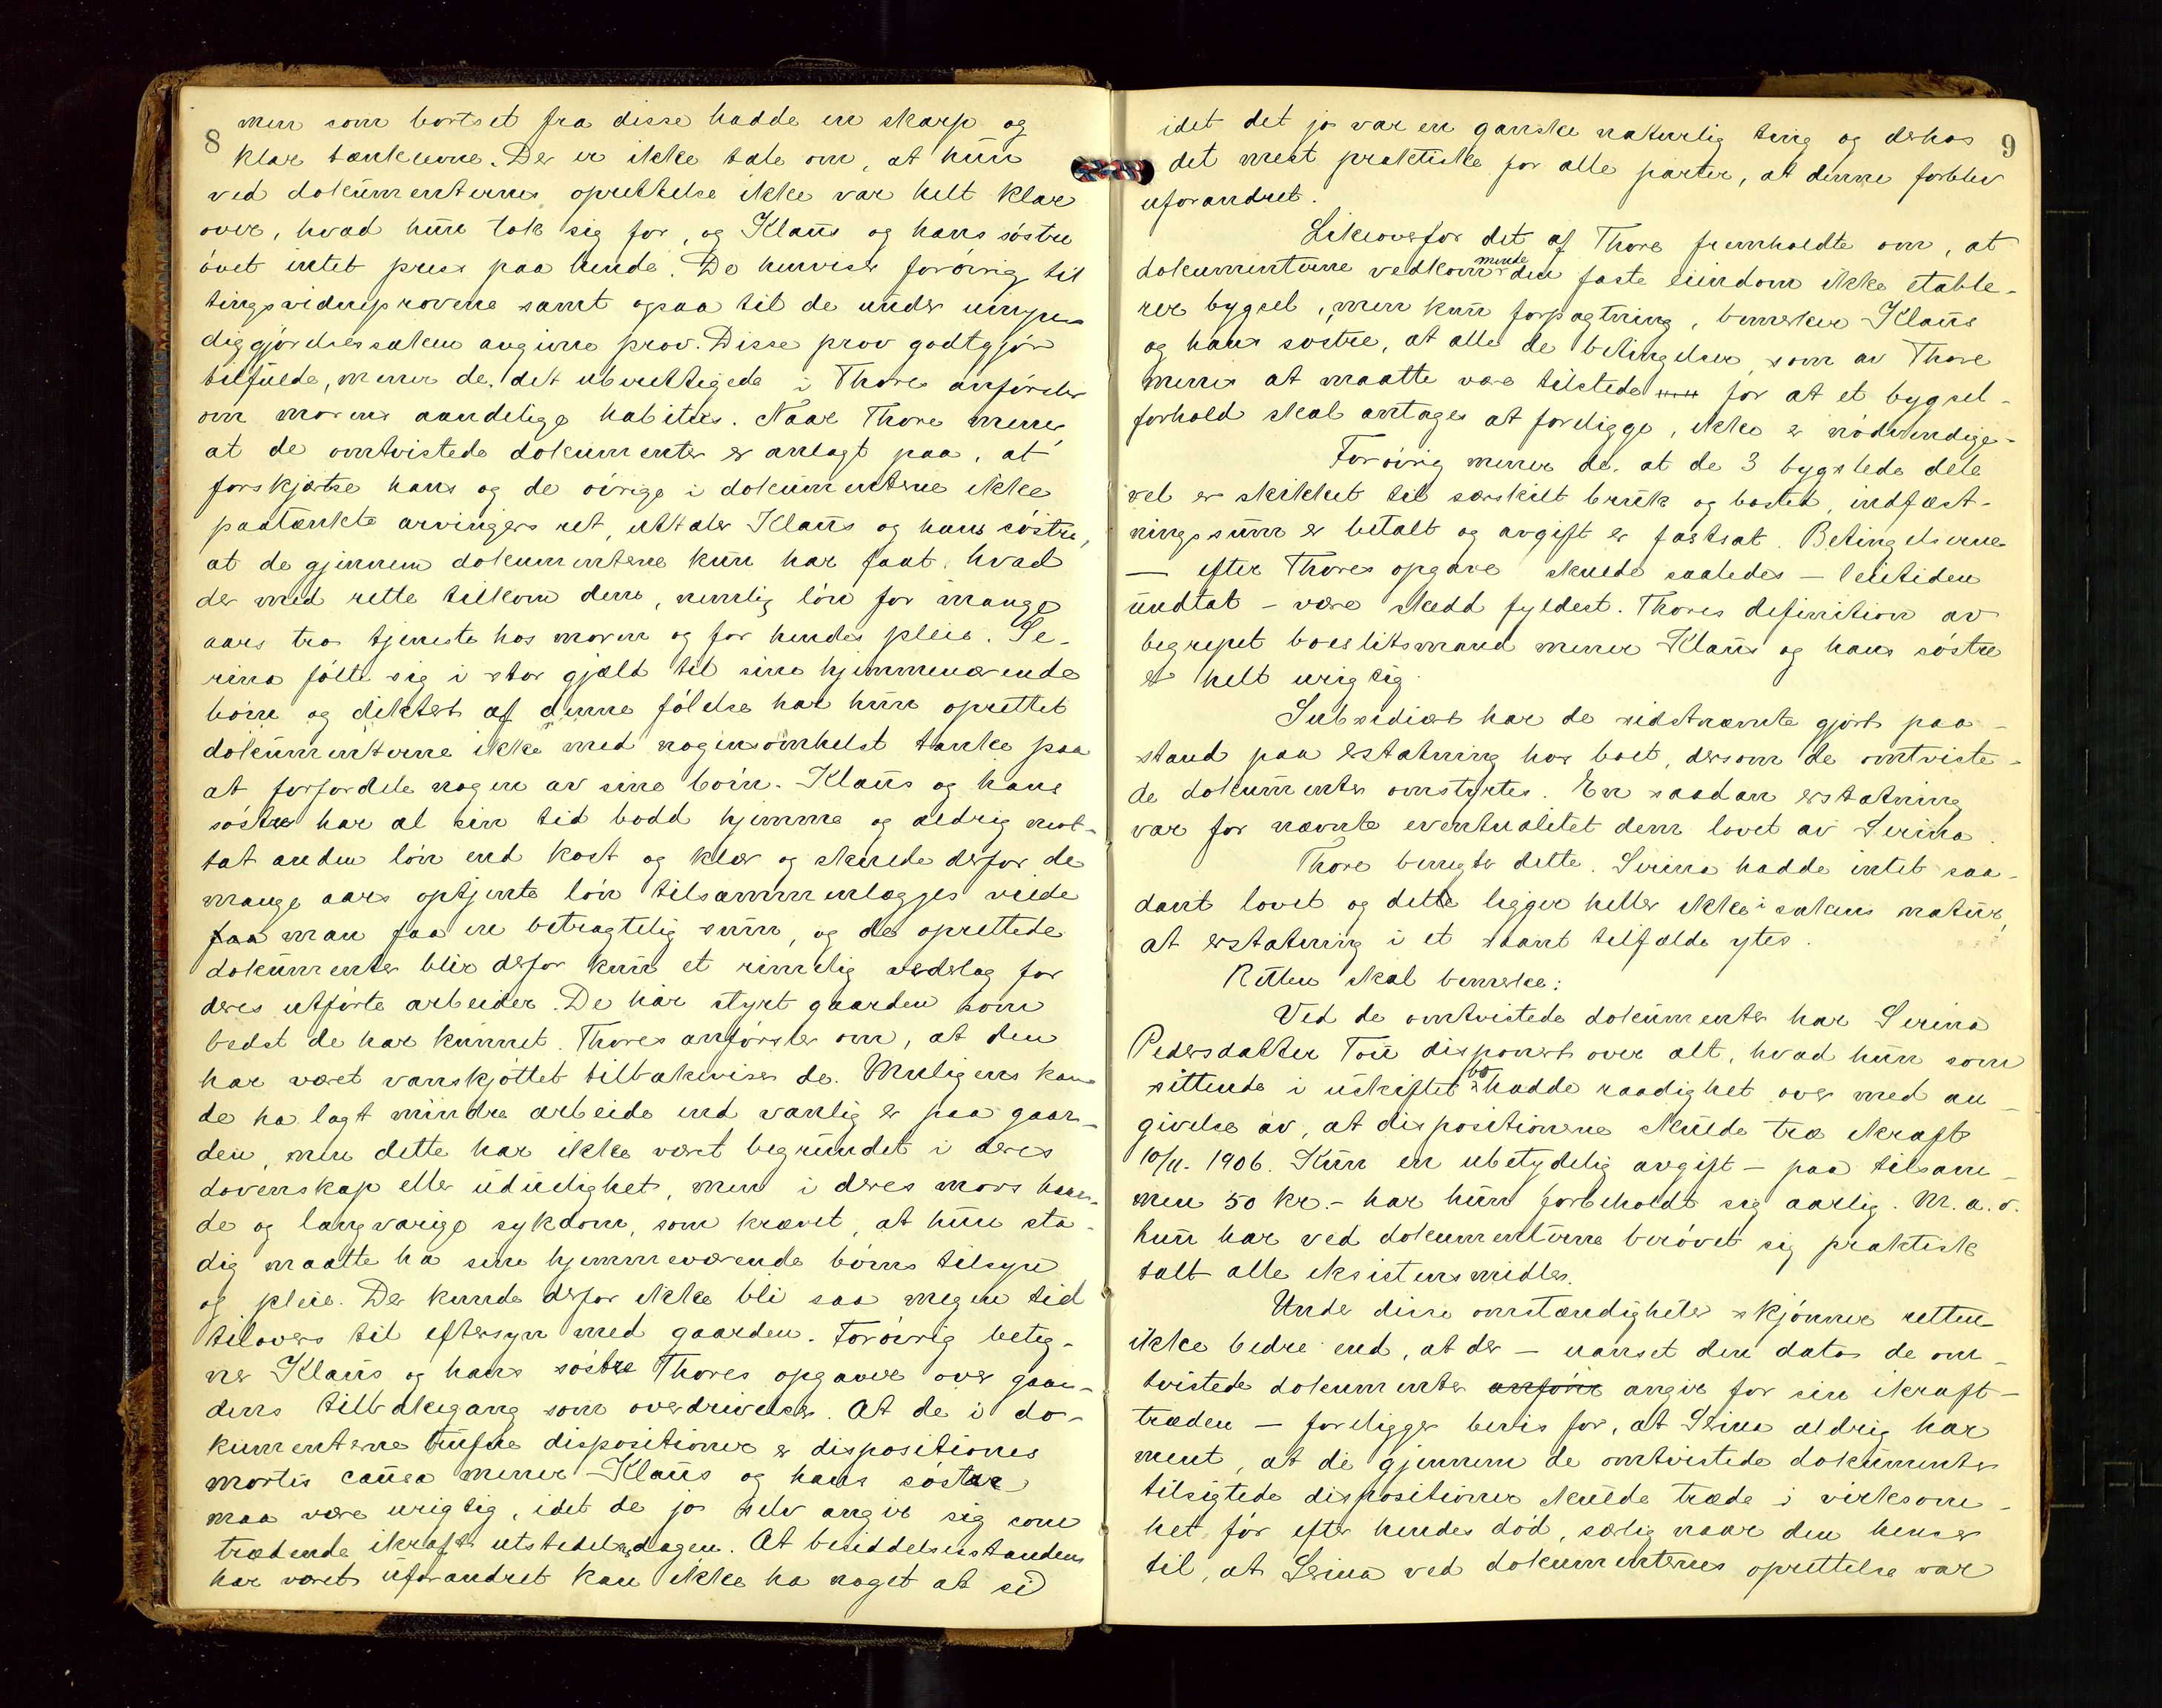 8
men som bortset fra disse hadde en skarp og
klar tankeevne. Der er ikke tale om, at hun
ved dokumenternes oprettelse ikke var helt klar
over, hvad hun tok sig for, og Klaus og hans søstre
øvet intet press paa hende. De henviser forøvrig til
tingsvidneprovene samt ogsaa til de under umyn-
diggjørelsessaken avgivne prov. Disse prov godtgjør
tilfulde, mener de, det uberettigede i Thores anførsler
om morens aandelige habitus. Naar Thore mener,
at de omtvistede dokumenter er anlagt paa, at
forskjærtse hans og de øvrige i dokumenterne ikke
paatænkte arvingers ret, uttaler Klaus og hans søstre,
at de gjennem dokumenterne kun har faat, hvad
der med rette tilkom dem, nemlig løn for mange
aars tro tjeneste hos moren og for hendes pleie. Se-
rina følte sig i stor gjæld til sine hjemmeværende
børn og diktert af denne følelse har hun oprettet
dokumenterne ikke med nogensomhelst tanke paa
at forfordele nogen av sine børn. Klaus og hans
søstre har al sin tid bodd hjemme og aldrig mot-
tat anden løn end kost og klær og skulde derfor de
mange aars optjente løn tilsammenlægges vilde
faa man faa en betragtelig sum, og de oprettede
dokumenter blir derfor kun et rimelig vederlag for
deres utførte arbeider. De har styrt gaarden som
bedst de har kunnet. Thores anførsler om, at den
har været vanskjøttet tilbakeviser de. Muligens kan
de ha lagt mindre arbeide end vanlig er paa gaar-
den, men dette har ikke været begrundet i deres
dovenskap eller udulighet, men i deres mors haar-
de og langvarige sykdom, som krævet, at hun sta-
dig maatte ha sine hjemmeværende børns tilsyn
og pleie. Der kunde derfor ikke bli saa megen tid
tilovers til eftersyn med gaarden. Forøvrig beteg-
ner Klaus og hans søstre Thores opgaver over gaar-
dens tilbakegang som overdrivelser. At de i do-
kumenterne trufne dispositioner er dispositiones
mortis causa mener Klaus og hans søstre
maa være urigtig, idet de jo selv angir sig som
trædende ikraft utstedelsesdagen. At besiddelsesstanden
har været uforandret kan ikke ha noget at si
9
idet det jo var en ganske naturlig ting og derhos
det mest praktiske for alle parter, at denne forblev
uforandret.
Likeoverfor det af Thore fremholdte om, at
dokumenterne vedkommende den faste eiendom ikke etable-
rer bygsel, men kun forpagtning, bemerker Klaus
og hans søstre, at alle de betingelser som av Thore
menes at maatte være tilstede for at et bygsel-
forhold skal antages at foreligge, ikke er nødvendige.
Forøvrig mener de, at de 3 bygslede dele
vel er skikket til særskilt bruk og bosted, indfæst-
ningssum er betalt og avgift er fastsat. Betingelserne
— efter Thores opgave skulde saaledes — leietiden
undtat — være skedd fyldest. Thores definition av
begrepet boeslitsmand mener Klaus og hans søstre
er helt urigtig.
Subsidiært har de sidstnævnte gjort paa-
stand paa erstatning hos boet, dersom de omtviste-
de dokumenter omstyrtes. En saadan erstatning
var for nævnte eventualitet dem lovet av Serina.
Thore benegter dette. Serina hadde intet saa-
dant lovet og dette ligger heller ikke i sakens natur,
at erstatning i et saant tilfælde ytes.
Retten skal bemerke:
Ved de omtvistede dokumenter har Serina
Pedersdatter Tou disponert over alt, hvad hun som
sittende i uskiftet bo hadde raadighet over med an-
givelse av, at dispositionerne skulde træ ikraft
10/11. 1906. Kun en ubetydelig avgift — paa tilsam-
men 50 kr. — har hun forbeholdt sig aarlig. M.a.o.
hun har ved dokumenterne berøvet sig praktisk
talt alle eksistensmidler.
Under disse omstændigheter skjønner retten
ikke bedre end, at der — uanset den dato de om-
tvistede dokumenter anfører angir for sin ikraft-
træden — foreligger bevis for, at Serina aldrig har
ment, at de gjennem de omtvistede dokumenter
tilsigtede dispositioner skulde træde i virksom-
het før efter hendes død, særlig naar den henser
til, at Serina ved dokumenternes oprettelse var